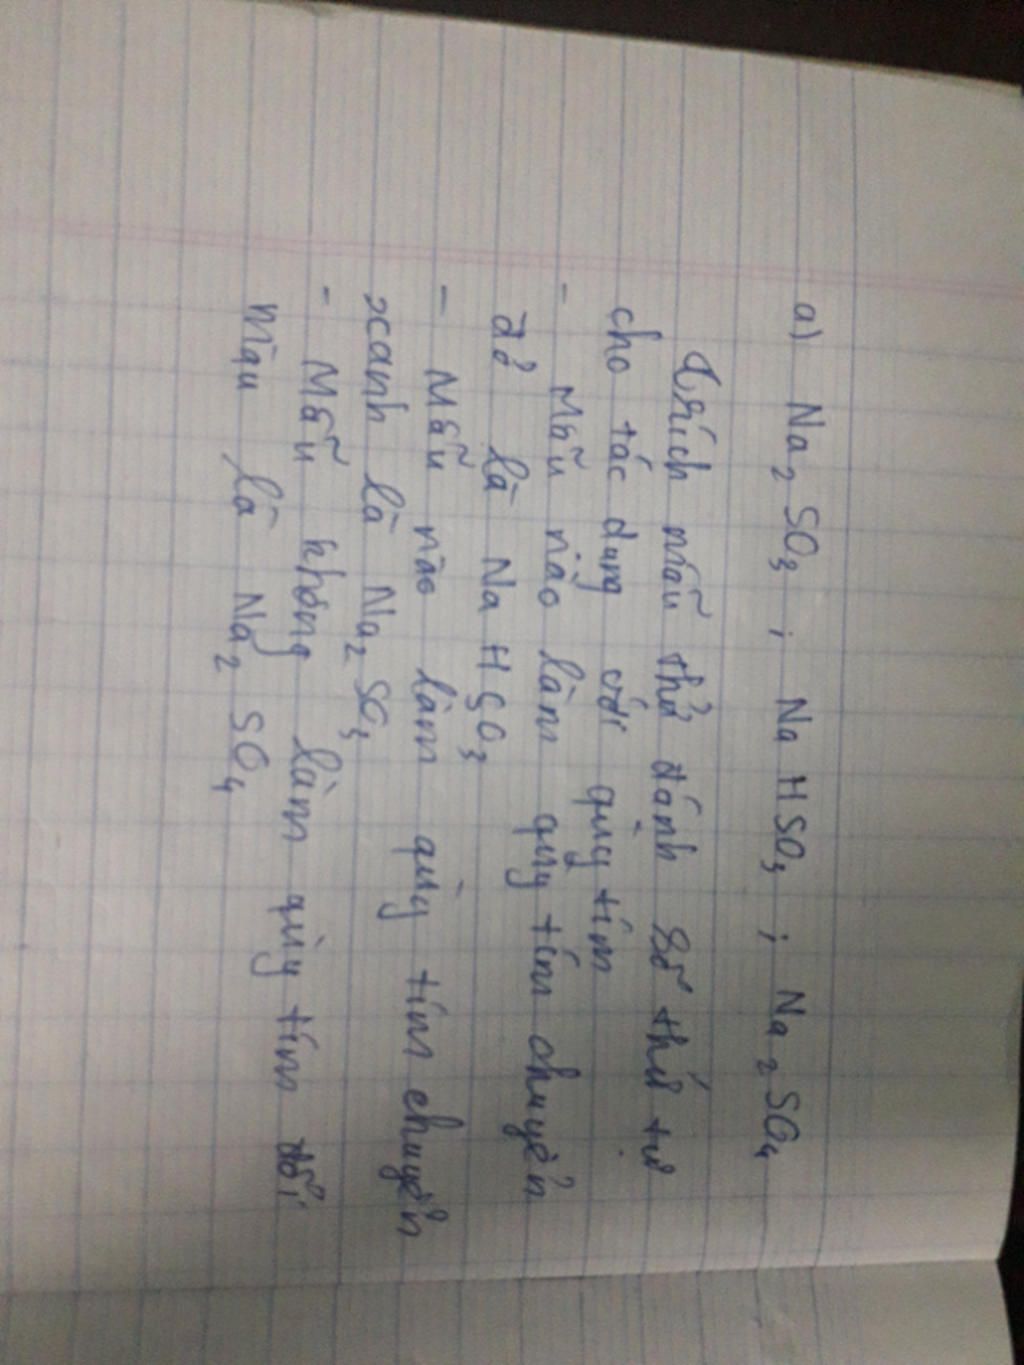 a) Na2SO3 ; NaHSO3 ; Na2SO4
Trích mẫu thử đánh số thứ tự
cho tác dụng với quỳ tím
- Mẫu nào làm quỳ tím chuyển
đỏ là NaHSO3
- Mẫu nào làm quỳ tím chuyển
xanh là Na2SO3
- Mẫu không làm quỳ tím đổi
màu là Na2SO4